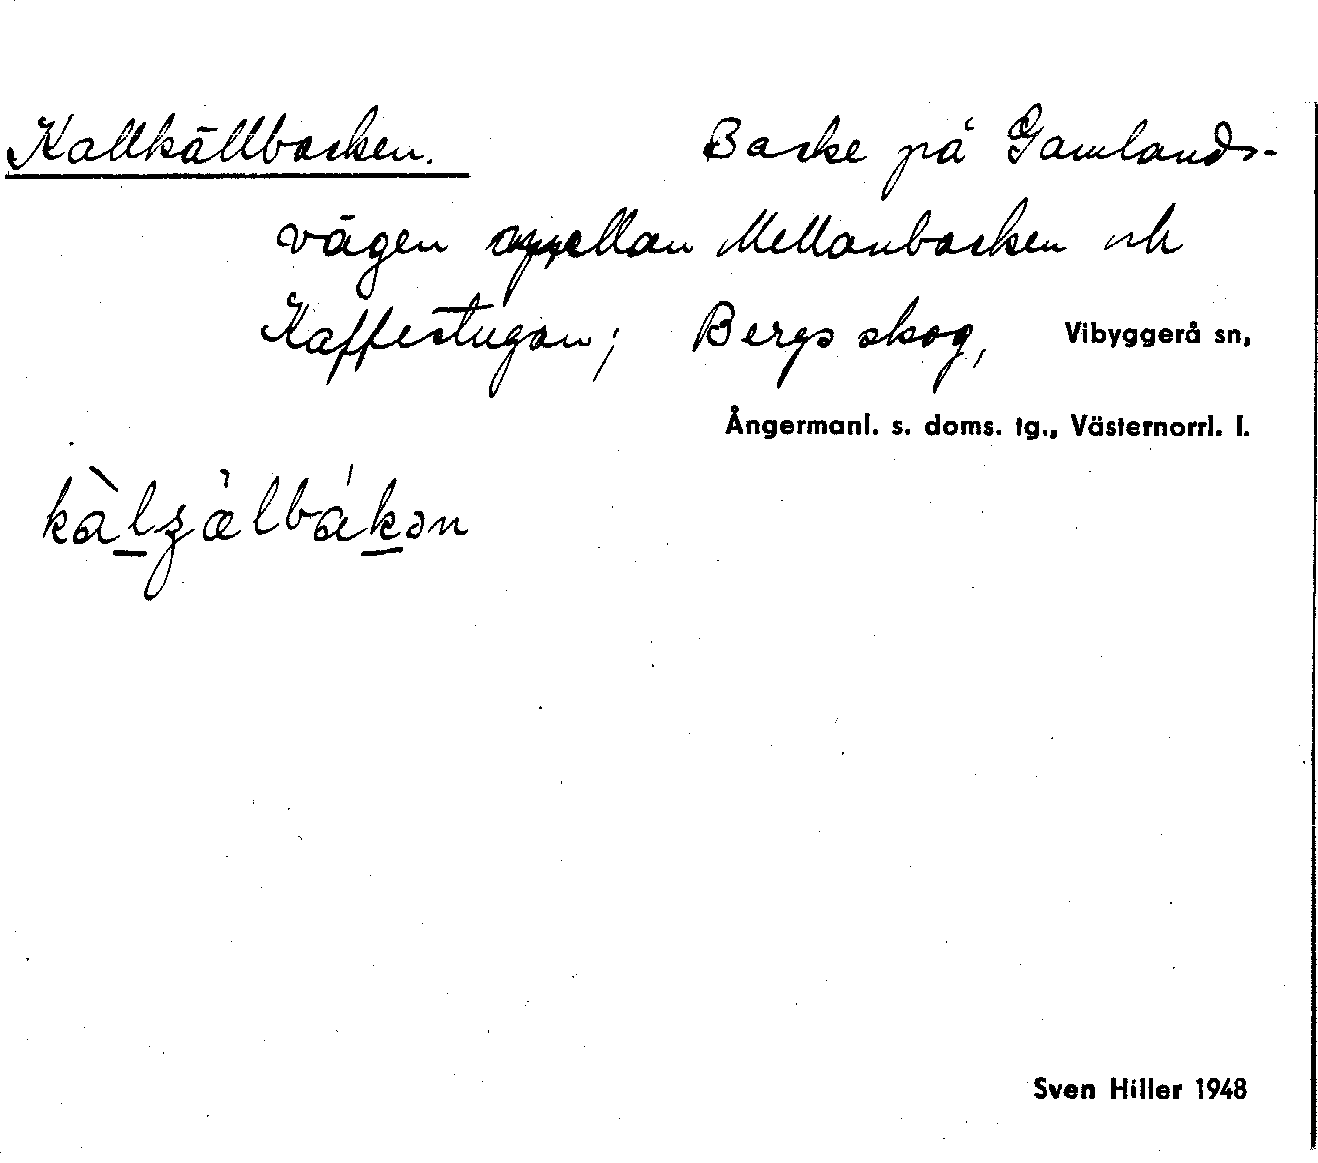 Kallkällbacken. Backe på Gamlands-
vägen mellan Mellanbacken och
Kaffestugan; Bergs skog, Vibyggerå sn,
Ångermanl. s. doms. tg., Västernorrl. l.
Sven Hiller 1948